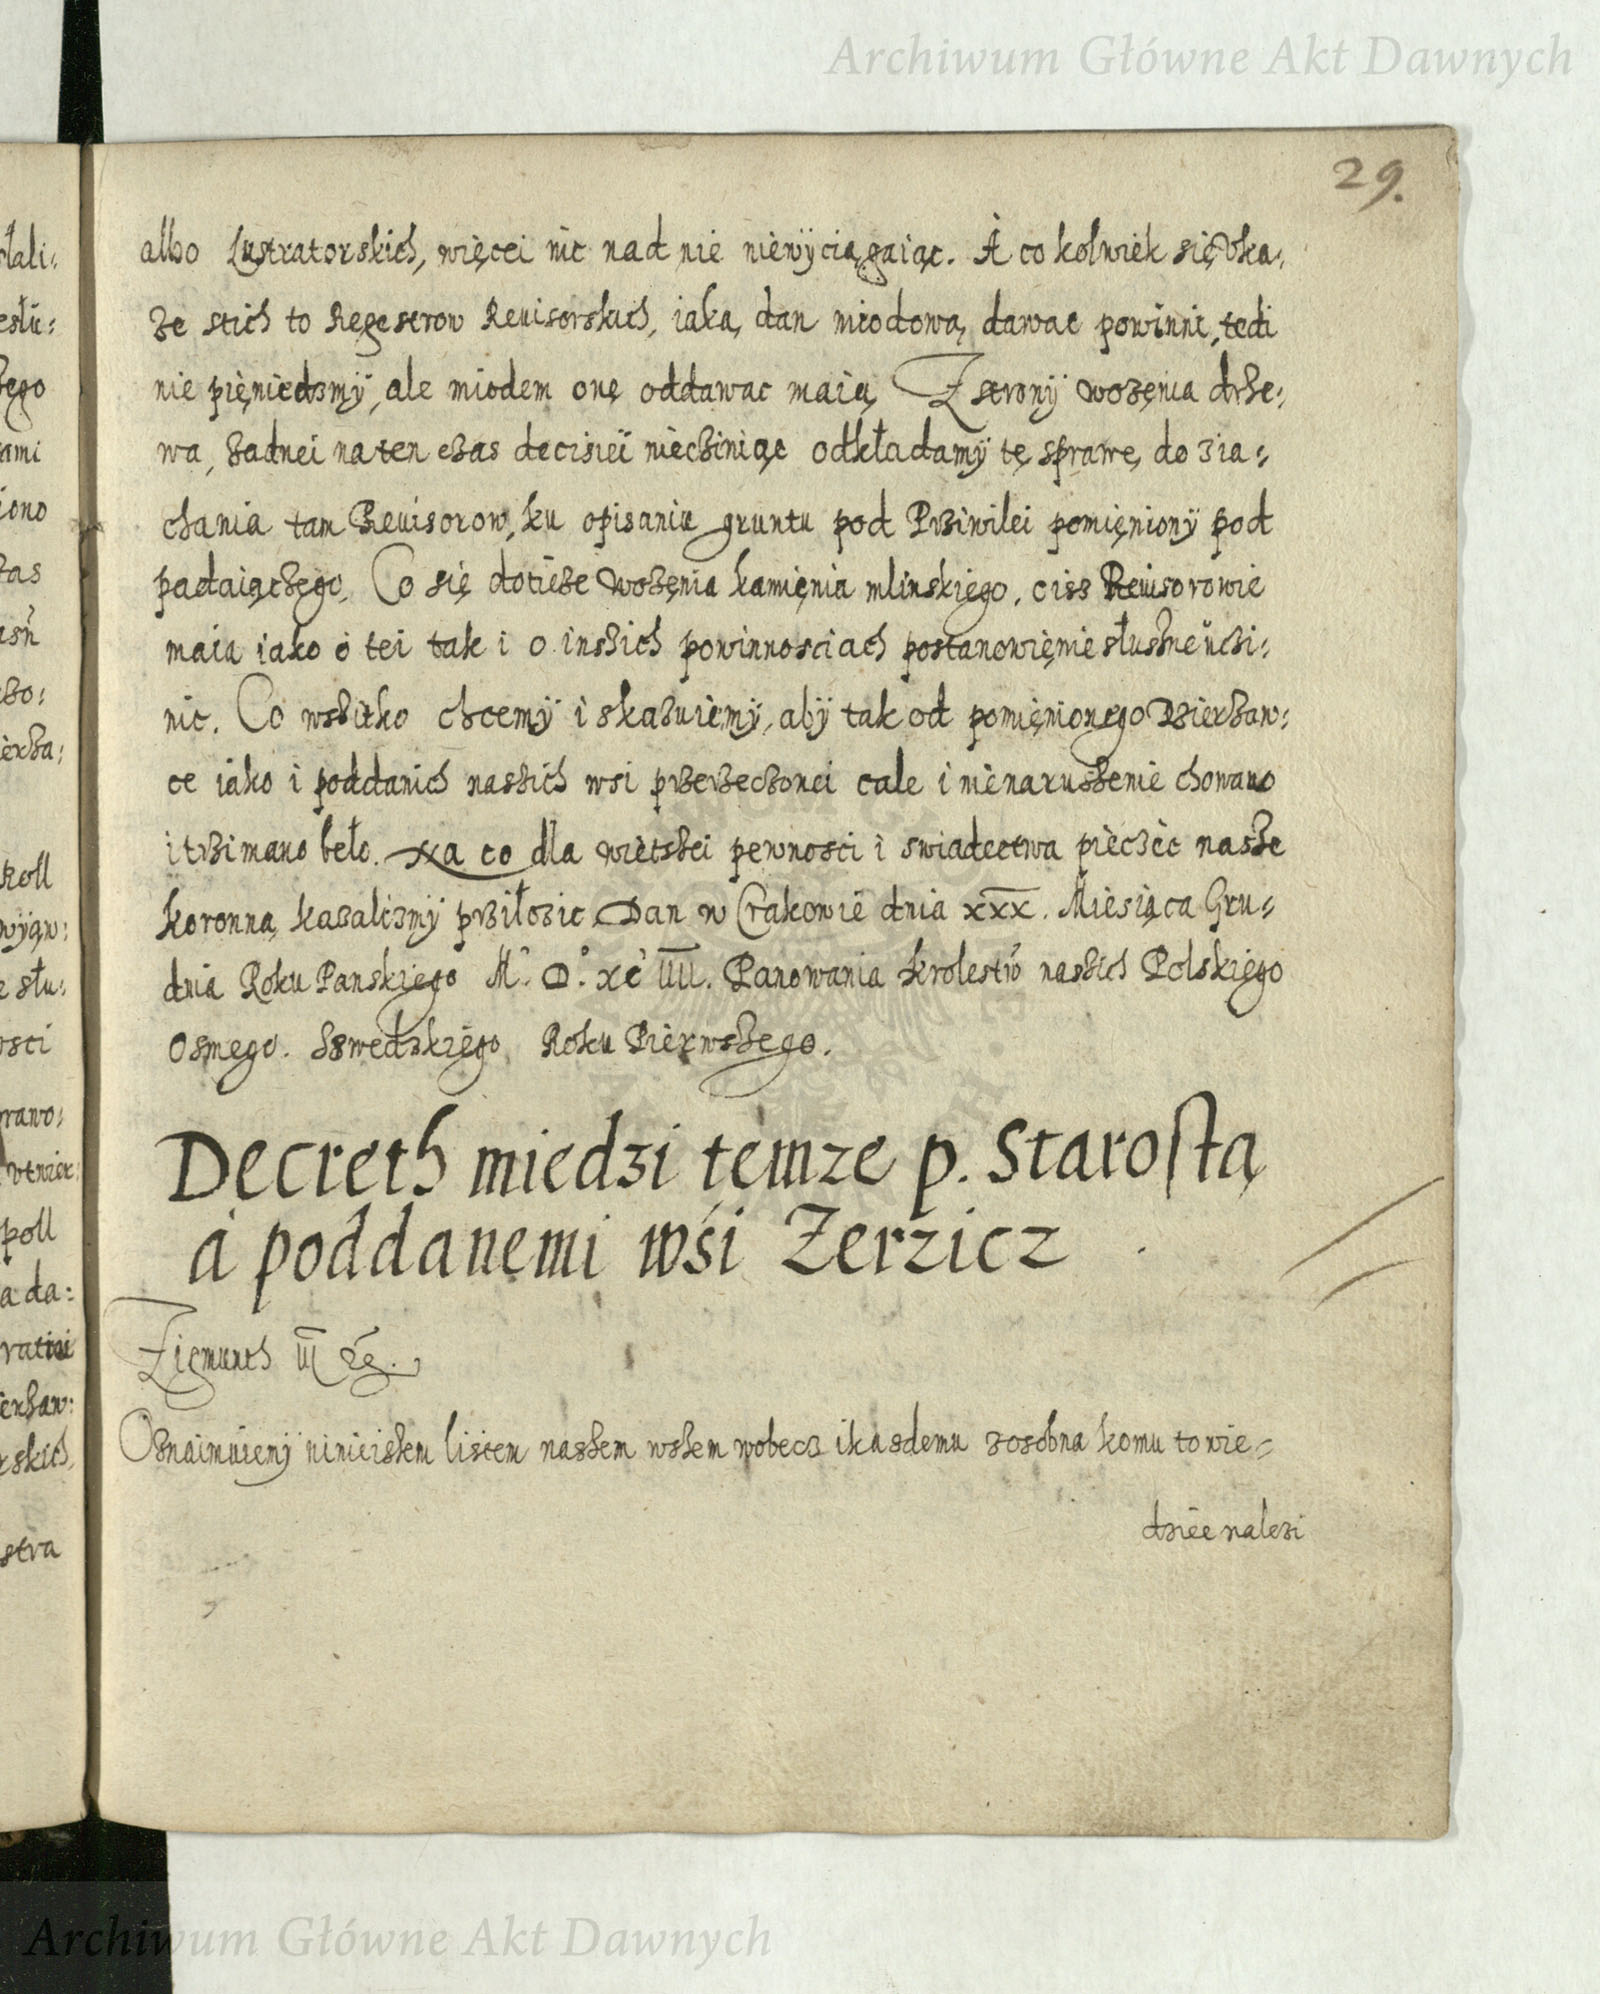 Archiwum Główne Akt Dawnych
29.
albo Lustratorskich, więcei nic nad nie niewÿciągaiąc. A co kolwiek się Vka⸗
że stich to Regestrow Reuisorskich, iaką dan miodową dawac powinni, tedi
nie pięniedzmÿ, ale miodem onę oddawac maią Z stronÿ wożęnia drże⸗
wa, żadnei na ten czas decisieï nieczÿniąc odkładamÿ tę sprawę do zia⸗
chania tam Reuisorow, ku opisaniu gruntu pod Prziwilei pomięnionÿ pod
padaiączego. Co się dotücże wożęnia kamięnia mlinskięgo, ciss Reuisorowie
maią iako o tei tak i o inszich powinnosciach postanowięnie słuszne ucżi⸗
nic. Co wszitko chcemÿ i skazuiemÿ, abÿ tak od pomięnionego Dzierżaw⸗
ce iako i poddanich naszich wsi przerzeczonei cale i nienaruszenie chowano
i trzimano beło. Na co dla wietszei pewnosci i swiadectwa pieczec nasze
koronną kazalismÿ prziłozic Dan w Crakowie dnia xxx. Miesiąca Gru⸗
dnia Roku Panskiego M. D. xc IIII. Panowania krolestw naszich Polskięgo
Osmego. Szwedzkięgo Roku Pierwszego.
Decreth miedzi temze p. Starostą
a poddanemi wśi Zerzicz
Zigmunth III
Oznaimuiemÿ ninieiszem listem naszem wszem wobecz ikazdemu zosobna komu to wie⸗
dziec nalezi
Archiwum Główne Akt Dawnych